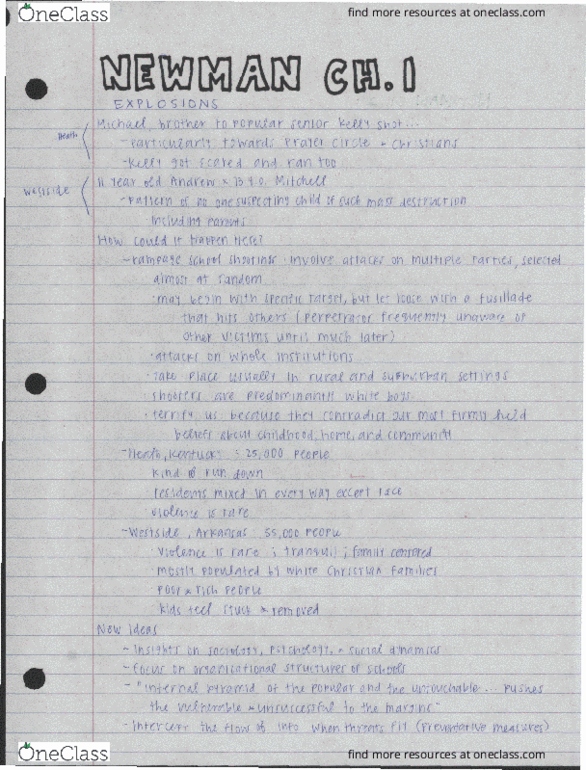 OneClass
find more resources at oneclass.com
NEWMAN CH. 1
EXPLOSIONS
Michael, brother to popular senior Kelly shot...
Heath
- particularly towards Prayer Circle + Christians
- Kelly got scared and ran too
Westside
11 year old Andrew & 13 y.o. Mitchell
- pattern of no one suspecting child of such mass destruction
including parents
How could it happen here?
- rampage school shootings · involve attacks on multiple parties, selected
almost at random
· may begin with specific target, but let loose with a fusillade
that hits others (perpetrator frequently unaware of
other victims until much later)
· attacks on whole institutions
· take place usually in rural and suburban settings
· shooters are predominantly white boys
· terrify us because they contradict our most firmly held
beliefs about childhood, home, and community
- Heath, Kentucky : 25,000 people
kind of run down
residents mixed in every way except race
violence is rare
- Westside, Arkansas 55,000 people
violence is rare ; tranquil ; family centered
mostly populated by white Christian families
poor & rich people
kids feel stuck & removed
New ideas
- insights on sociology, psychology, + social dynamics
- focus on organizational structures of schools
- "internal pyramid of the popular and the untouchable... pushes
the vulnerable + unsuccessful to the margins"
- intercept the flow of info when threats (preventative measures)
OneClass
find more resources at oneclass.com